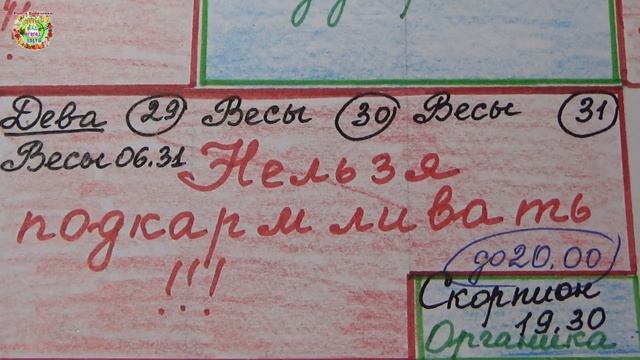 Дева 29 Весы 30 Весы 31
Весы 06.31
Нельзя
подкармливать
!!!
до 20.00
Скорпион
19.30
Органика